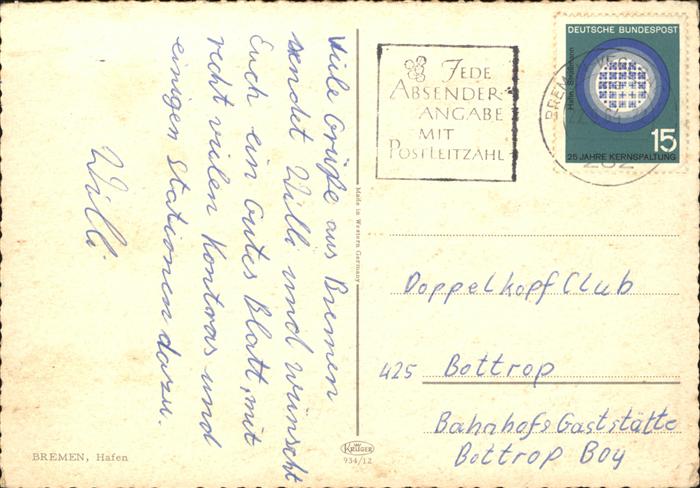 Viele Grüße aus Bremen
sendet Willi und wünscht
Euch ein Gutes Blatt, mit
recht vielen Kontras und
einigen Stationen dazu.
Willi
BREMEN, Hafen
Made in Western Germany
KRÜGER
934/12
JEDE
ABSENDER-
ANGABE
MIT
POSTLEITZAHL
DEUTSCHE BUNDESPOST
Hahn, Straßmann
15
25 JAHRE KERNSPALTUNG
Doppelkopf Club
425 Bottrop
Bahnhofs Gaststätte
Bottrop Boy